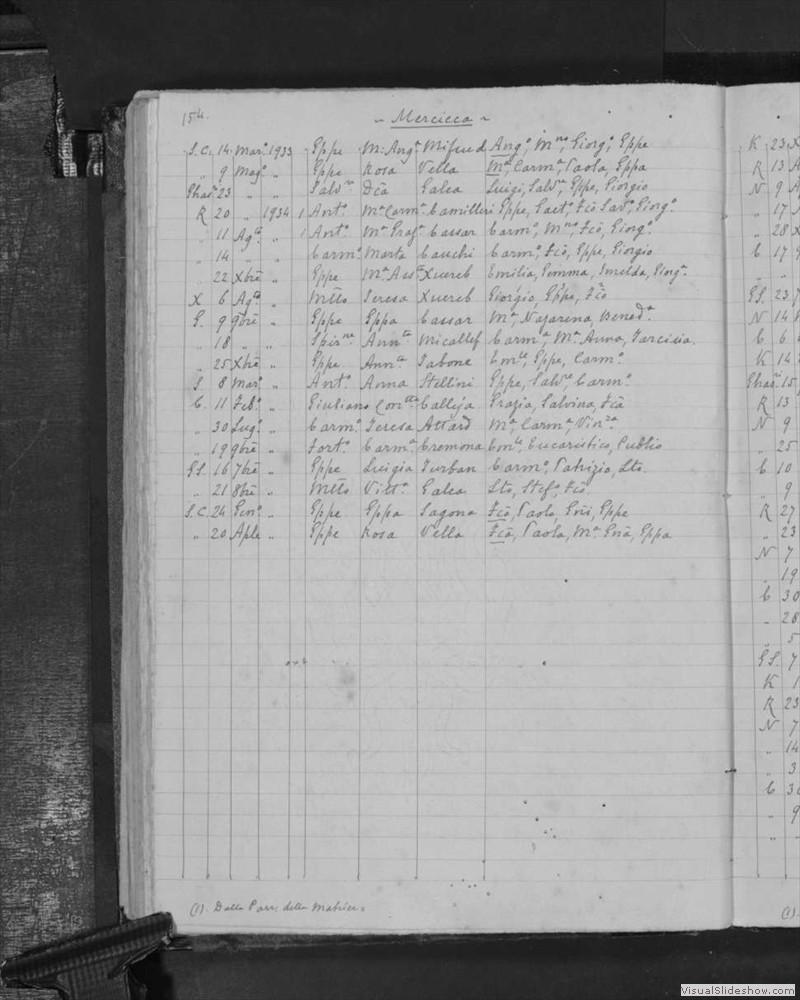 154.
- Mercieca -
S.C. 14 Mar° 1933 Gppe M: Ang.a Mifsud Ang°, Mno, Giorg°, Gppe
„ 9 Mag° „ Gppe Rosa Vella Ma, Carma, Paola, Gppa
Ghar. 23 „ „ Salvre Dca Galea Luigi, Salvre, Gppe, Giorgio
R 20 „ 1934 1 Ant° Ma Carma Camilleri Gppe, Gaet°, Fco Salv°, Giorg°.
„ 11 Ag.to „ 1 Ant° Ma Graz.a Cassar Carm°, Mno, Fco, Giorg°.
„ 14 „ „ Carm° Marta Cauchi Carm°, Fco, Gppe, Giorgio
„ 22 Xbre „ Gppe Ma Ass.ta Xuereb Emilia, Gemma, Imelda, Giorg.a
X 6 Ag.to „ Mtto Teresa Xuereb Giorgio, Gppe, Fco
G. 9 9bre „ Gppe Gppa Cassar Ma, Nazarena, Bened.a
„ 18 „ „ Spir.ne Ann.ta Micallef Carma, Ma Anna, Tarcisia.
„ 25 Xbre „ Gppe Ann.ta Tabone Emle, Gppe, Carm°
S 8 Mar° „ Ant° Anna Stellini Gppe, Salvre, Carm°.
C. 11 Feb° „ Giuliano Con.tta Calleja Grazia, Salvina, Fca
„ 30 Lug° „ Carm° Teresa Attard Ma, Carma, Vin.za
„ 19 9bre „ Fort° Carma Cremona Emle, Eucaristico, Publio
GS. 16 7bre „ Gppe Luigia Zurban Carm°, Patrizio, Sto.
„ 21 8bre „ Mtto Vitt.a Galea Sto, Stef°, Fco.
S.C. 24 Gen° „ Gppe Gppa Sagona Fco, Paolo, Gppe
„ 20 Aple „ Gppe Rosa Vella Fca, Paola, Ma, Gppa
(1). Dalla Parr. della Matrice.
K 23
R 13
N 9
„ 17
„ 28
C 17
„ „
GS. 23
N 14
C 6
K 14
Ghar. 15
R 13
N 9
„ 25
C 10
„ 9
R 27
„ 23
N 7
„ 19
C 30
„ 28
„ 5
GS. 7
K 1
R 23
N 7
„ 14
„ 3
C 30
„ 9
(1).
VisualSlideshow.com